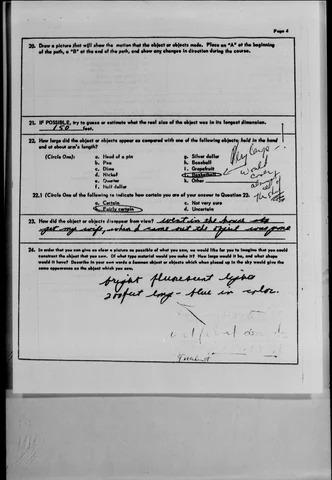 Page 4
20. Draw a picture that will show the motion that the object or objects made. Place an "A" at the beginning
of the path, a "B" at the end of the path, and show any changes in direction during the course.
21. IF POSSIBLE, try to guess or estimate what the real size of the object was in its longest dimension.
150 feet.
22. How large did the object or objects appear as compared with one of the following objects held in the hand
and at about arm's length?
(Circle One): a. Head of a pin g. Silver dollar
b. Pea h. Baseball
c. Dime i. Grapefruit
d. Nickel j. Basketball
e. Quarter k. Other
f. Half dollar
Very large
would
cover
about
that
22.1 (Circle One of the following to indicate how certain you are of your answer to Question 22.
a. Certain c. Not very sure
b. Fairly certain d. Uncertain
23. How did the object or objects disappear from view? went in the house to
get my wife, when I came out the object was gone
24. In order that you can give as clear a picture as possible of what you saw, we would like for you to imagine that you could
construct the object that you saw. Of what type material would you make it? How large would it be, and what shape
would it have? Describe in your own words a common object or objects which when placed up in the sky would give the
same appearance as the object which you saw.
bright fluorescent light
200 feet long - blue in color.